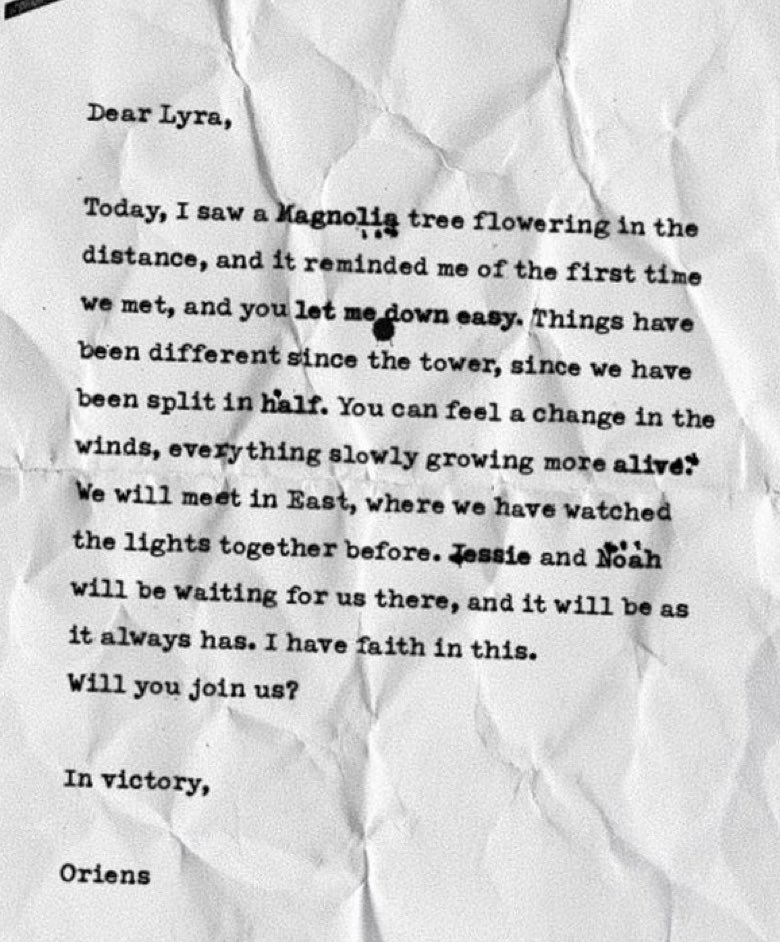 Dear Lyra,
Today, I saw a Magnolia tree flowering in the
distance, and it reminded me of the first time
we met, and you let me down easy. Things have
been different since the tower, since we have
been split in half. You can feel a change in the
winds, everything slowly growing more alive.
We will meet in East, where we have watched
the lights together before. Jessie and Noah
will be waiting for us there, and it will be as
it always has. I have faith in this.
Will you join us?
In victory,
Oriens